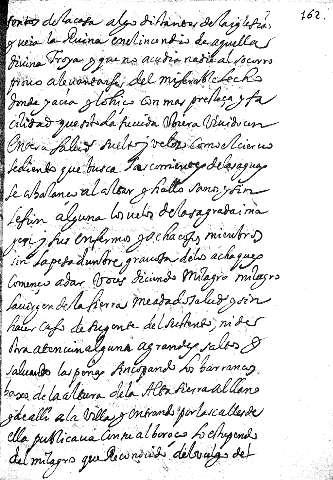 162.
de la cosa algo distantes de la iglesia
y veia la Ruina en el incendio de aquella
divina Troya, y que no acudia nadie al socorro
trino a levantarse del miserable lecho
donde yacia y lo hiço con mas presteça y fa
cilidad que si toda su vida ubiera vivido con
entera salud suelto y veloz como el cierbo
sediento que busca las corrientes de las aguas
se abalanço al altar y hallo sanos y sin
lesion alguna los velos de la sagrada ima
jen y sus enfermos y achacosos miembros
sin la pesadumbre gravosa de los achaques
començo a dar voces diciendo Milagro milagro
la virgen de la sierra me a dado salud y sin
hacer caso de
atencion alguna a grandes saltos
salvando las peñas los barrancos
baxo de la altura de la Alta sierra al llano
y de alli a la Villa y entrando por las calles de
ella publicava con su alboroço lo estupendo
del milagro que Reconocido del vulgo del